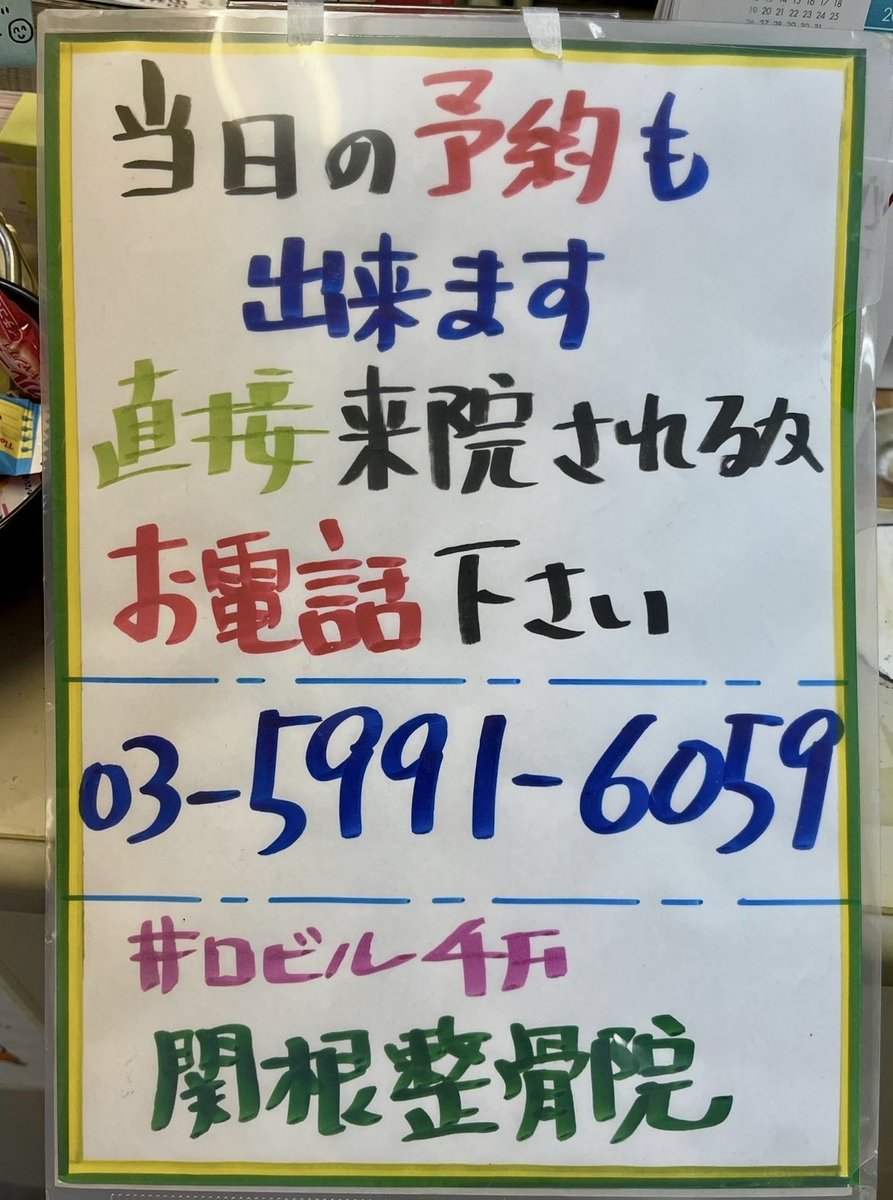 19 20 21 22 23 24 25
当日の予約も
出来ます
直接来院されるか
お電話下さい
03-5991-6059
井口ビル4F
関根整骨院